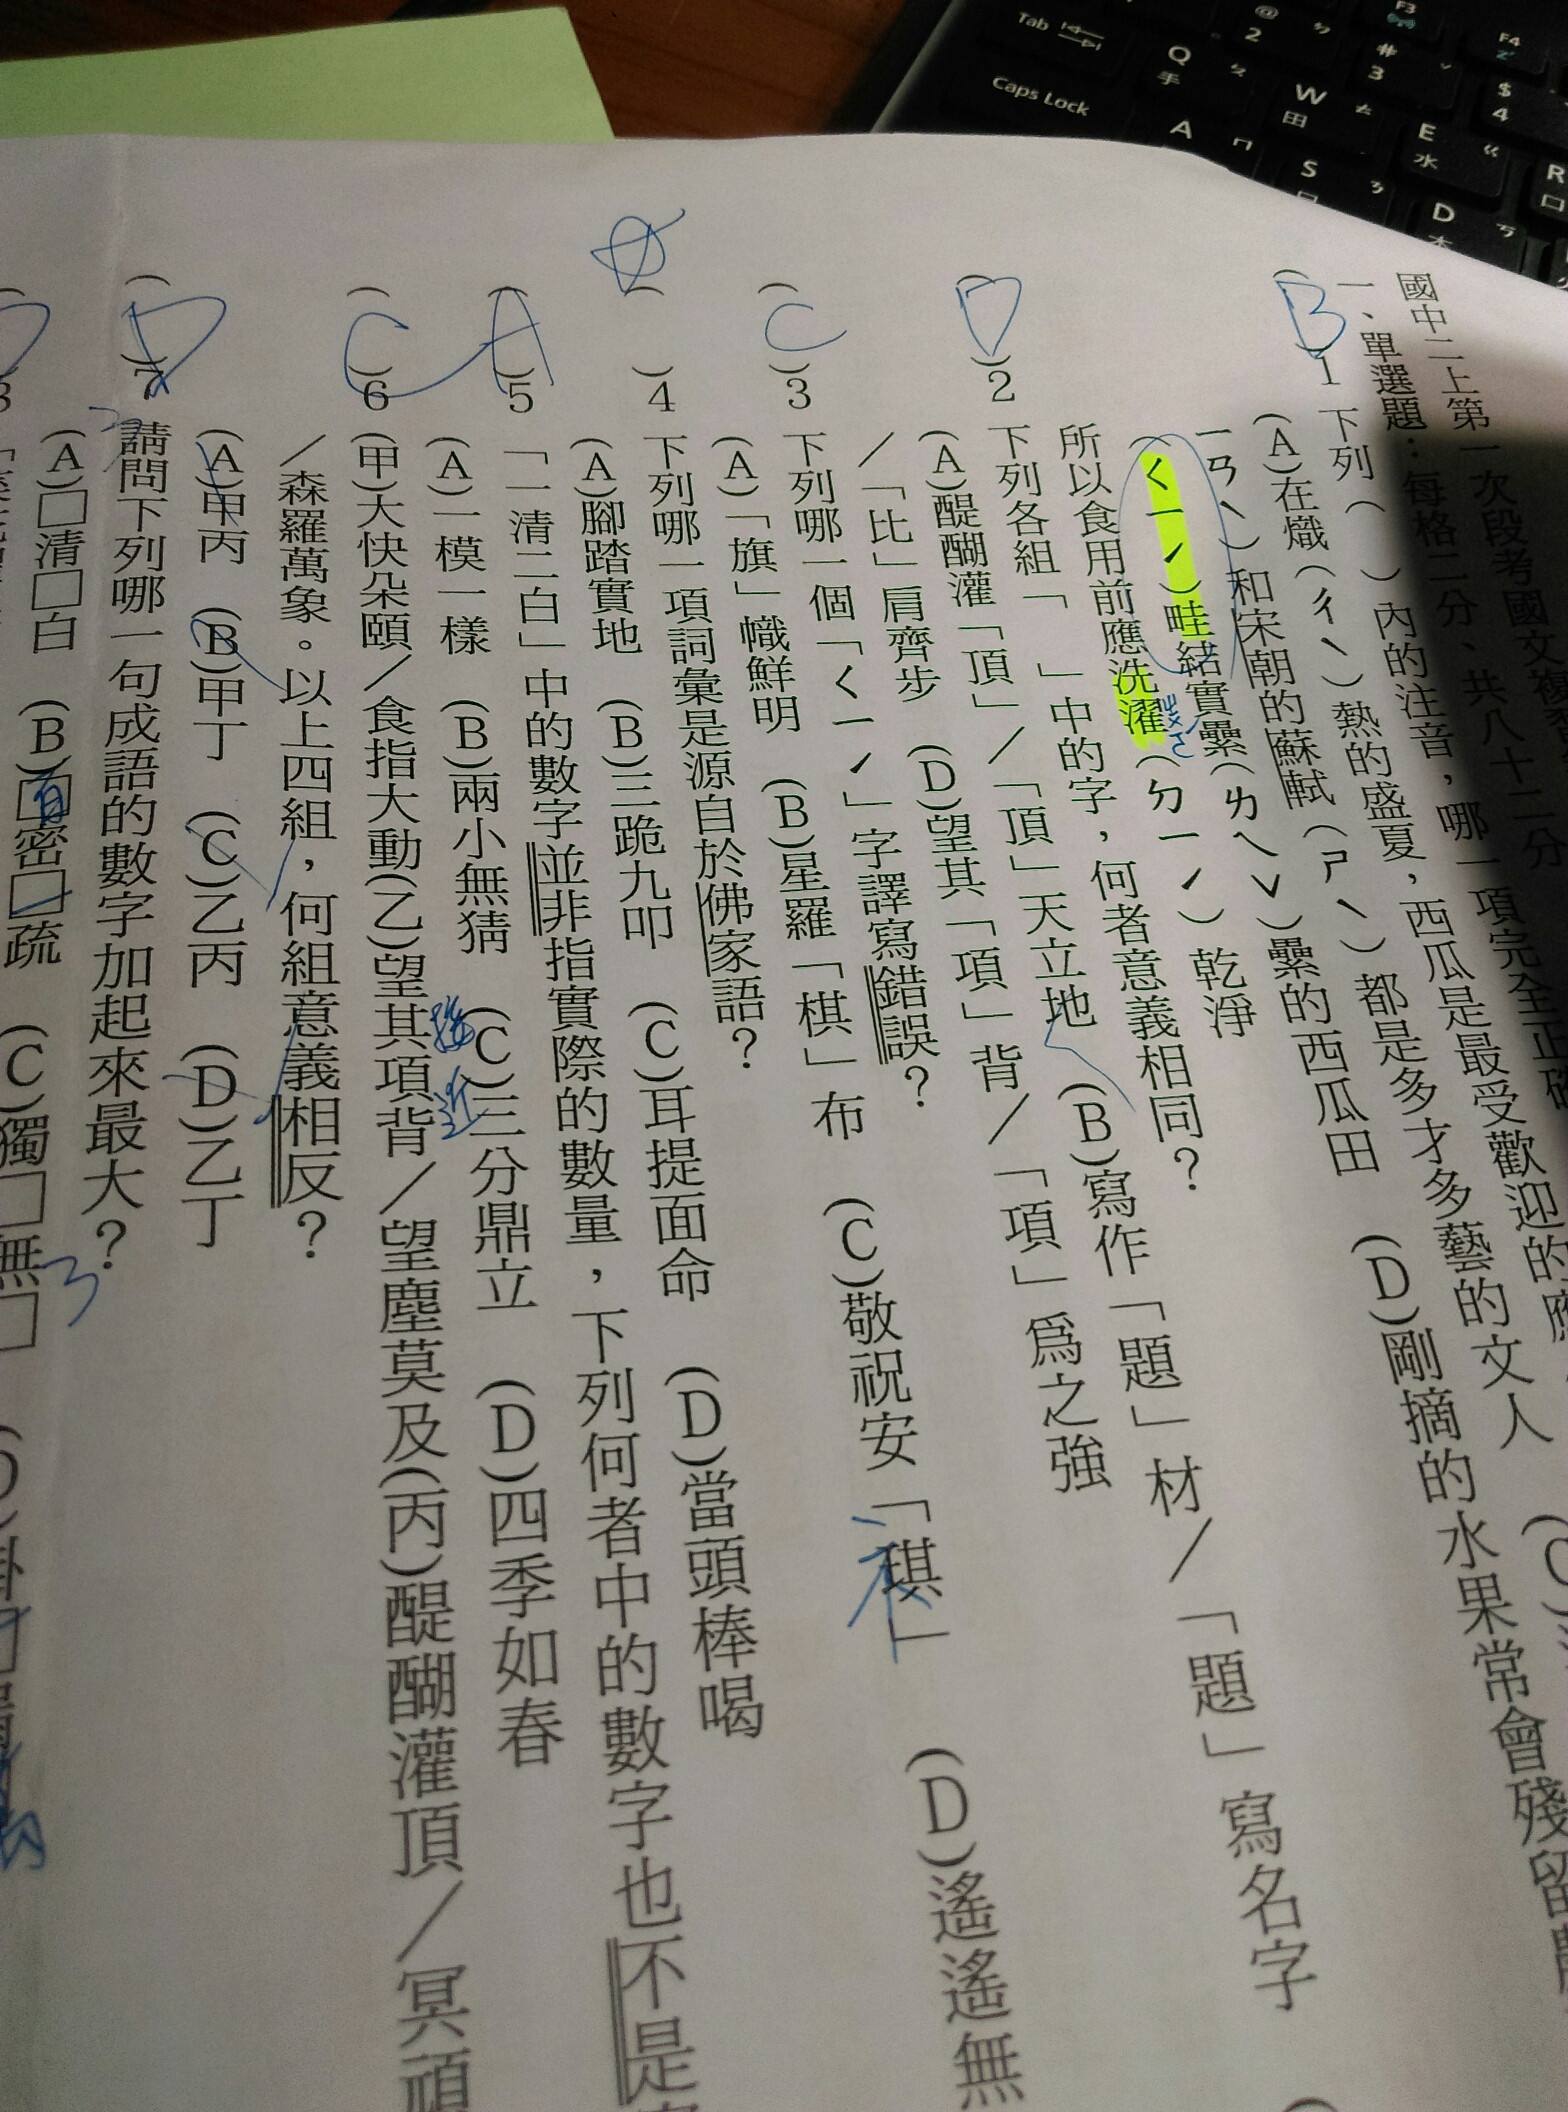 國中二上第一次段考國文複
一、單選題：每格二分、共八十二分
B
1
下列（　）內的注音，哪一項完全正確
(A)在熾（ㄔˋ）熱的盛夏，西瓜是最受歡迎的
ㄧㄢˋ）和宋朝的蘇軾（ㄕˋ）都是多才多藝的文人
(ㄑㄧˊ）畦緒實纍（ㄌㄟˇ）纍的西瓜田　(D)剛摘的水果常會殘留
所以食用前應洗濯（ㄉㄧˊ）乾淨
D
2
下列各組「　」中的字，何者意義相同？
(A)醍醐灌「頂」／「頂」天立地　(B)寫作「題」材／「題」寫名字
／「比」肩齊步　(D)望其「項」背／「項」為之強
C
3
下列哪一個「ㄑㄧˊ」字譯寫錯誤？
(A)「旗」幟鮮明　(B)星羅「棋」布　(C)敬祝安「琪」　(D)遙遙無
4
下列哪一項詞彙是源自於佛家語？
(A)腳踏實地　(B)三跪九叩　(C)耳提面命　(D)當頭棒喝
A
5
「一清二白」中的數字並非指實際的數量，下列何者中的數字也不是
(A)一模一樣　(B)兩小無猜　(C)三分鼎立　(D)四季如春
C
6
(甲)大快朵頤／食指大動(乙)望其項背／望塵莫及(丙)醍醐灌頂／冥頑
／森羅萬象。以上四組，何組意義相反？
(A)甲丙　(B)甲丁　(C)乙丙　(D)乙丁
D
7
請問下列哪一句成語的數字加起來最大？
(A)□清□白　(B)□密□疏　(C)獨□無□
Tab
Caps Lock
Q
手
ㄆ
A
ㄇ
@
2
ㄉ
W
田
ㄊ
S
ㄋ
F3
#
3
ˇ
E
水
ㄍ
D
木
ㄎ
F4
$
4
R
口